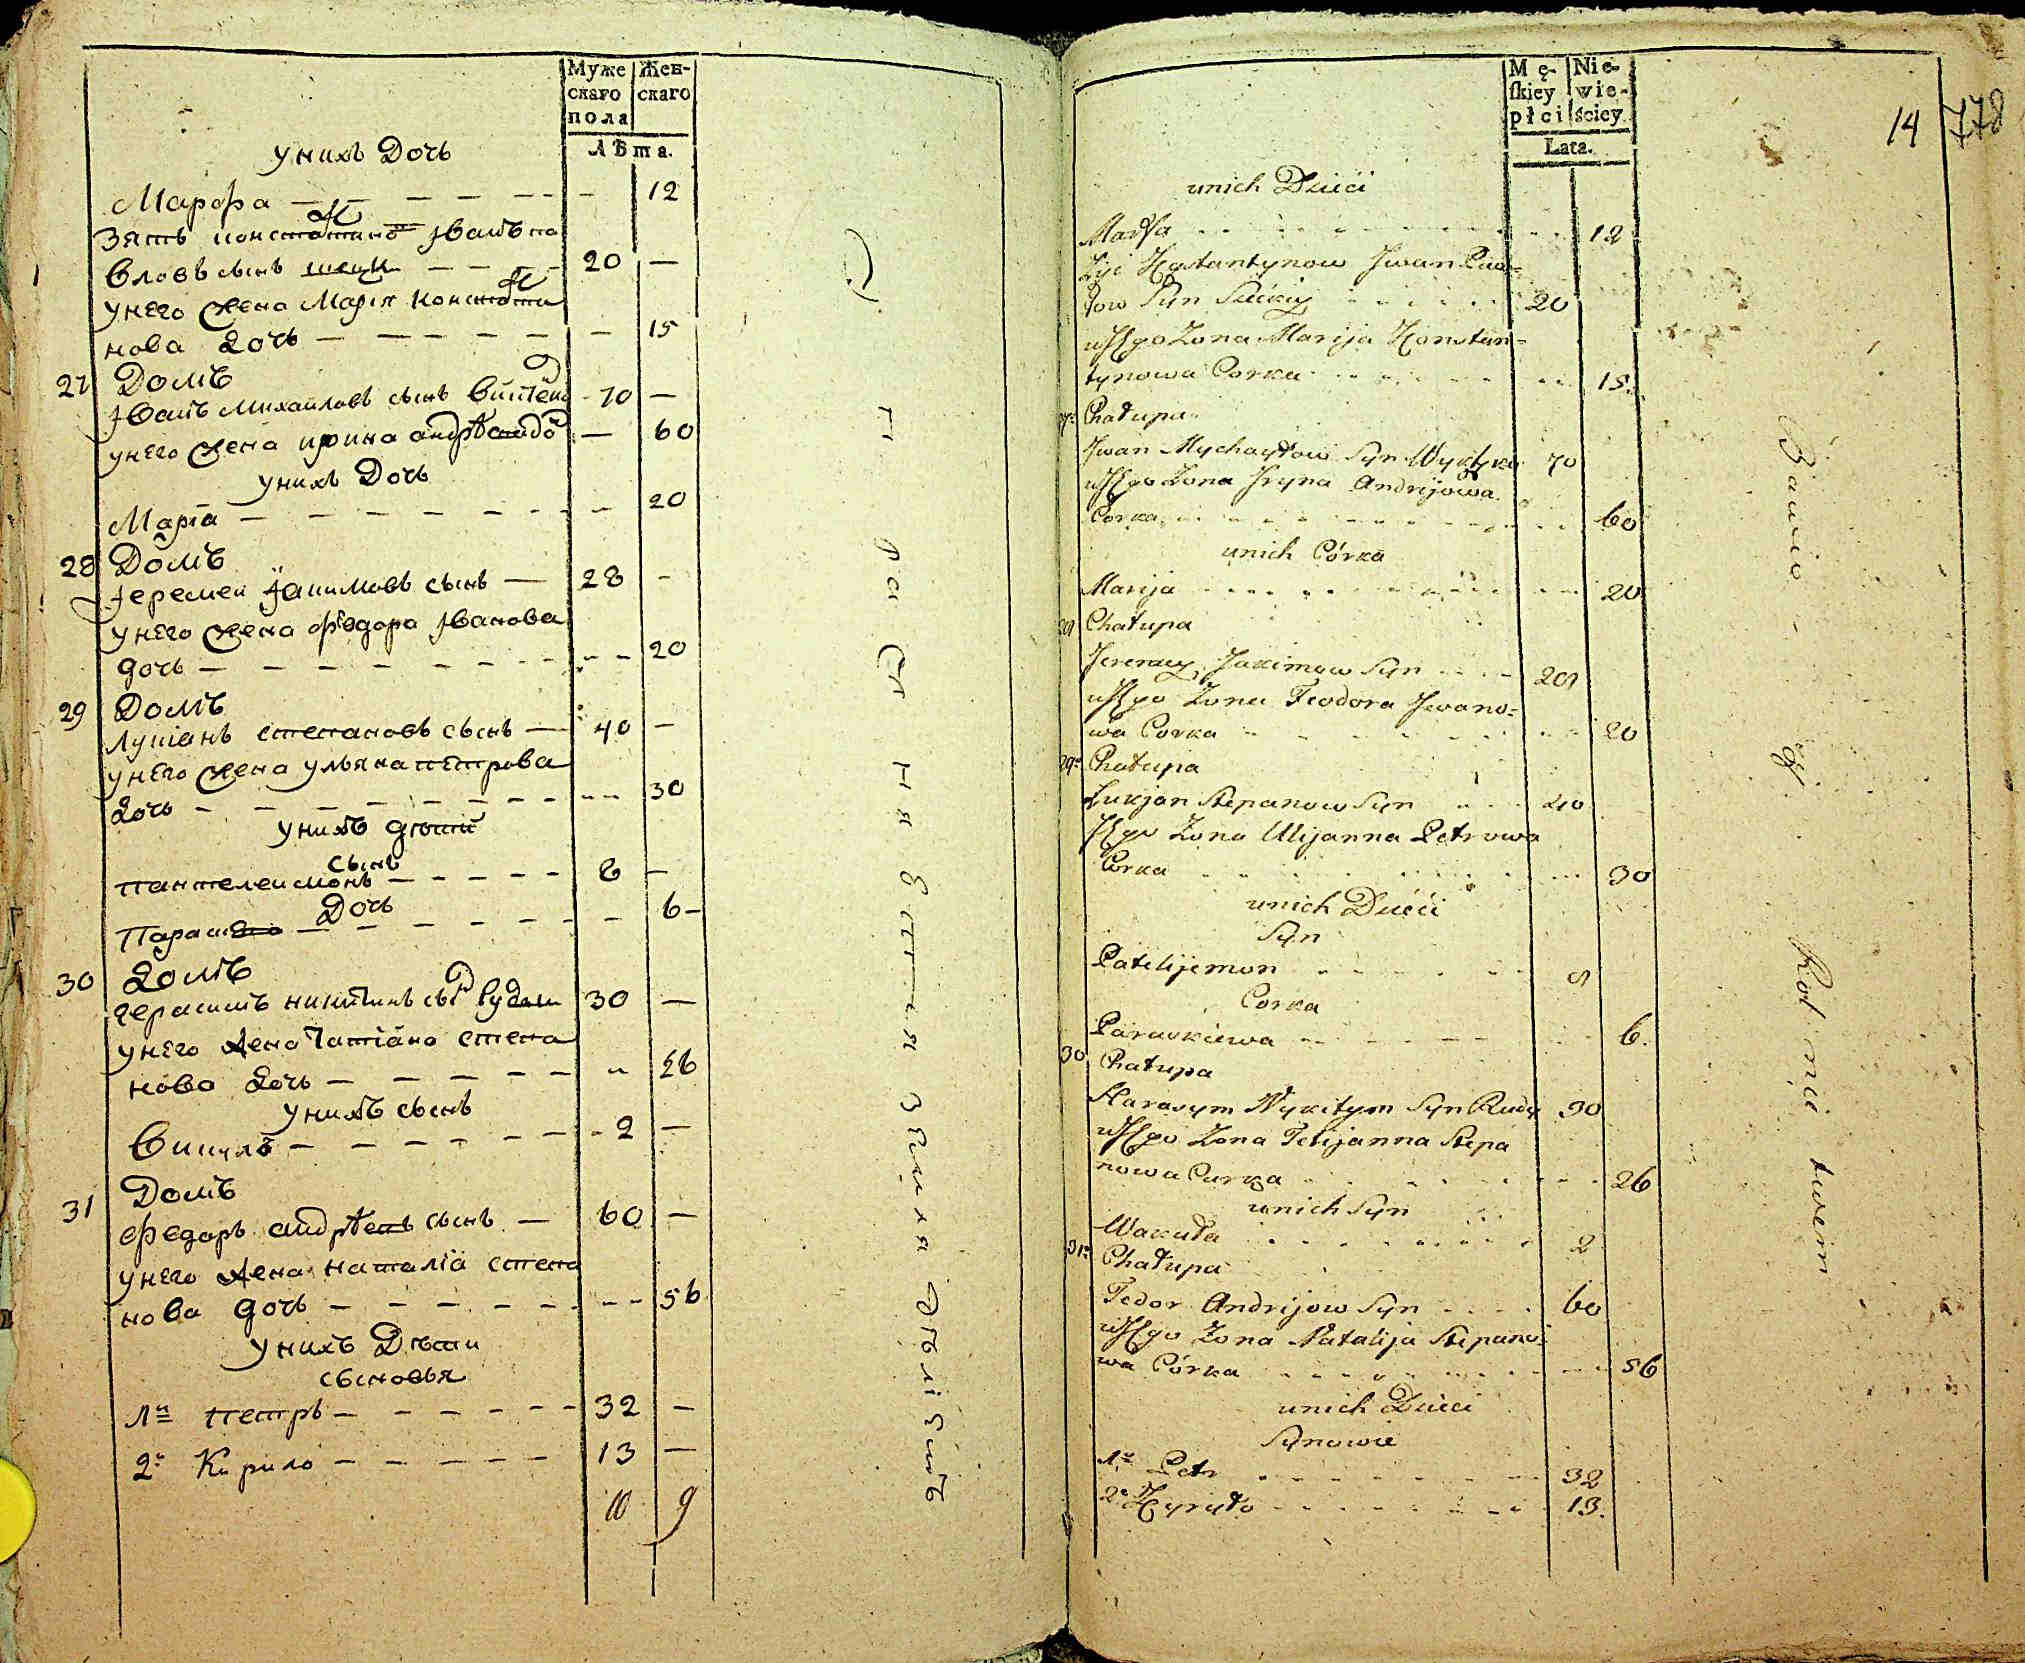 Муже Жен-
скаго скаго
пола
Лѣта.
у нихъ Дочь
Марфа — — — — — 12
Зять константиновъ Іванъ па
вловъ сынъ — — — 20 —
у него жена Марія константи
нова Дочь — — — — — 15
27 Домъ
Іванъ Михайловъ сынъ 70 —
у него жена ирина андрѣева до — 60
у нихъ Дочь
Маріа — — — — — — 20
28 Домъ
Іеремей Іакимовъ сынъ — 28 —
у него жена феодора Іванова
дочь — — — — — — 20
29 Домъ
Лукіанъ степановъ сынъ — 40 —
у него жена ульяна петрова
Дочь — — — — — — 30
у нихъ дѣти
сынъ
пантелеимонъ — — — — 8 —
Дочь
Параскева — — — — — 6 —
30 Домъ
герасимъ никитинъ сынъ Рудый 30 —
у него жена Татіана степа
нова Дочь — — — — — 26
у нихъ сынъ
Викула — — — — — 2 —
31 Домъ
федоръ андрѣевъ сынъ — 60 —
у него жена наталіа степа
нова дочь — — — — — 56
у нихъ Дѣти
сыновья
1й петръ — — — — — 32 —
2й Кирило — — — — — 13 —
10 9
Сі
поселяня
вотъ
землядѣліемъ
14 778
Mę- Nie-
skiey wie-
płci ściey
Lata.
unich Dzieci
Marfa 12
Zięć Kostantynow Jwan Paw=
łow Syn 20
u Jego Zona Marija Konstan=
tynowa Corka 15.
27. Chałupa
Jwan Mychayłow Syn 70
u Jego Zona Jryna Andrijowa
Corka 60
unich Córka
Marija 20
28 Chałupa
Jeremey Jakimow Syn 28
u Jego Zona Feodora Jwano=
wa Corka 20
29. Chałupa
Łukjan Stepanow Syn 40
u Jego Zona Ulijanna Petrowa
Corka 30
unich Dzieći
Syn
Patelijemon 8
Corka
Paraskiewa 6.
30 Chałupa
Harasym Nykitym Syn Rudy 30
u Jego Zona Tetijanna Stepa
nowa Curka 26
unich Syn
Wakuła 2
31. Chałupa
Fedor Andrijow Syn 60
u Jego Zona Natalija Stepano=
wa Córka 56
unich Dzieci
Synowie
1. Petr 32
2. Kyryło 13.
Bawio-
śę
Rol nic twem